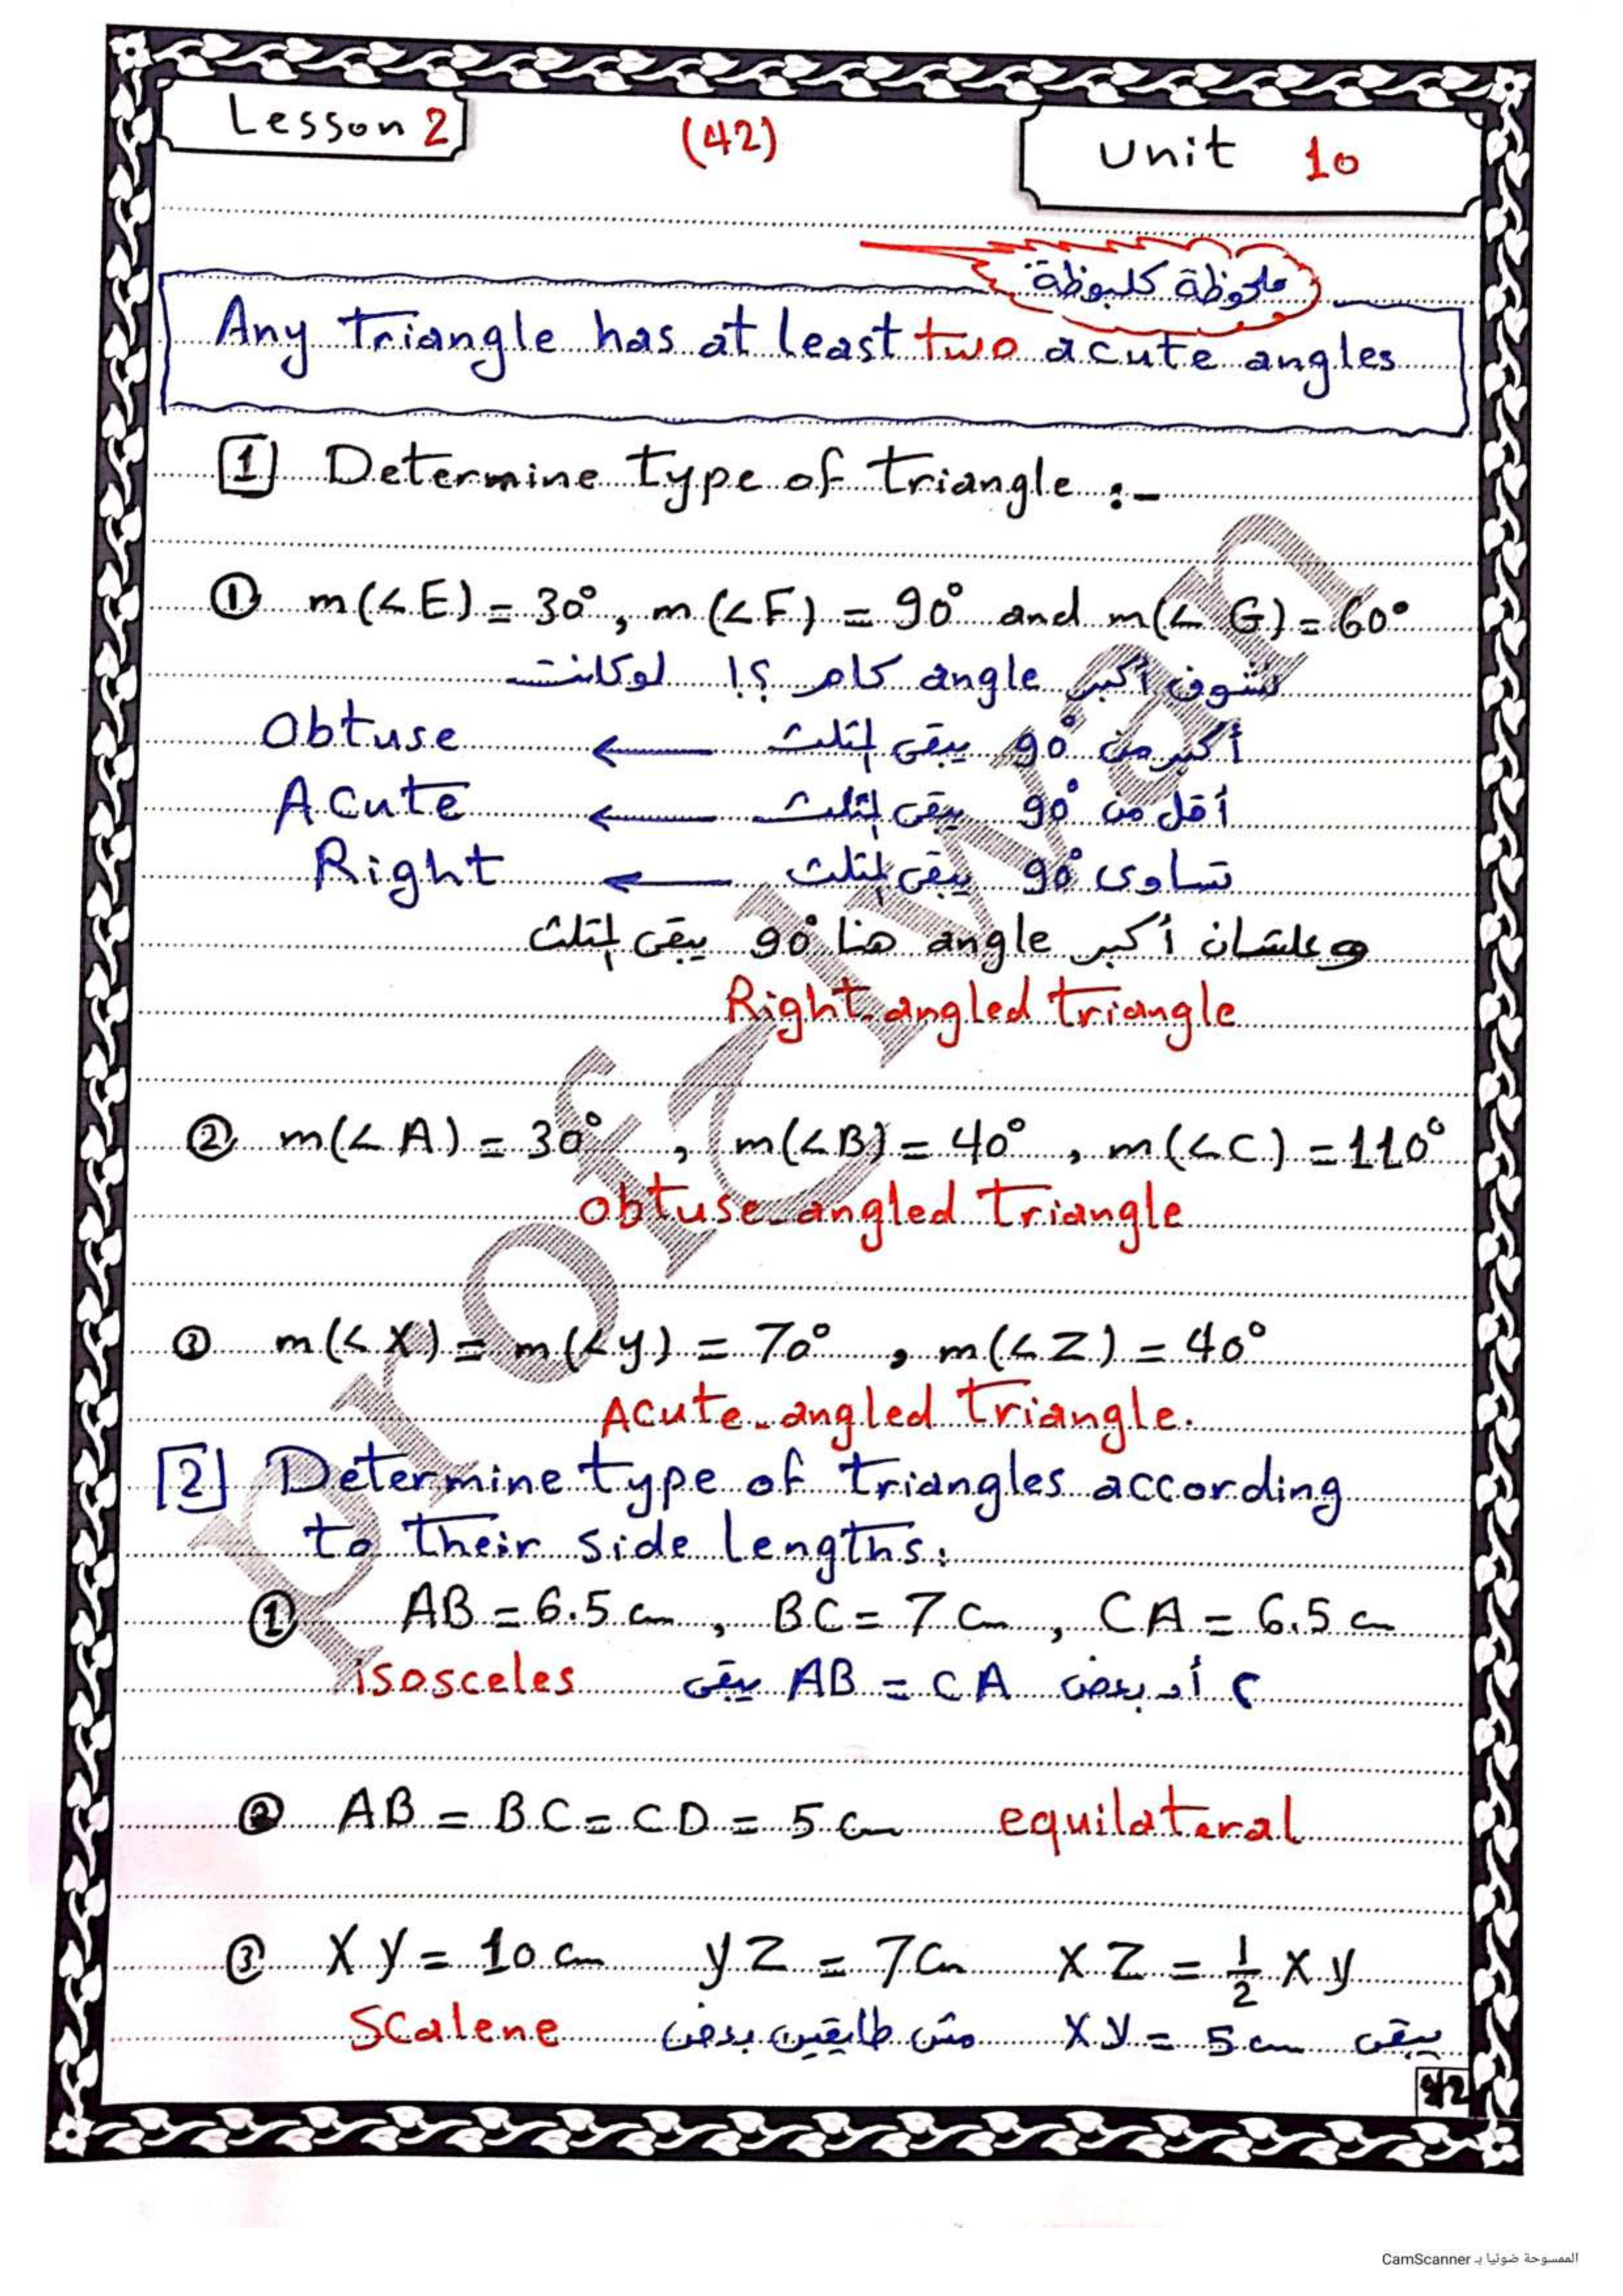 Lesson 2
(42)
Unit 10
ملحوظة كلبوظة
Any triangle has at least two acute angles
1 Determine type of triangle :-
① m(∠E) = 30°, m(∠F) = 90° and m(∠G) = 60°
نشوف أكبر angle كام ؟! لو كانت
أكبر من 90° يبقى المثلث ← Obtuse
أقل من 90° يبقى المثلث ← Acute
تساوى 90° يبقى المثلث ← Right
وعلشان أكبر angle هنا 90° يبقى المثلث
Right-angled triangle
② m(∠A) = 30°, m(∠B) = 40°, m(∠C) = 110°
obtuse-angled triangle
③ m(∠X) = m(∠y) = 70°, m(∠Z) = 40°
Acute-angled triangle.
2 Determine type of triangles according
to their side lengths:
① AB = 6.5 cm, BC = 7 cm, CA = 6.5 cm
٢ أد بعض AB = CA يبقى isosceles
② AB = BC = CD = 5 cm equilateral
③ Xy = 10 cm yZ = 7 cm XZ = 1/2 Xy
يبقى Xy = 5 cm مش طايقين بعض Scalene
42
الممسوحة ضوئيا بـ CamScanner
Prof Iwan